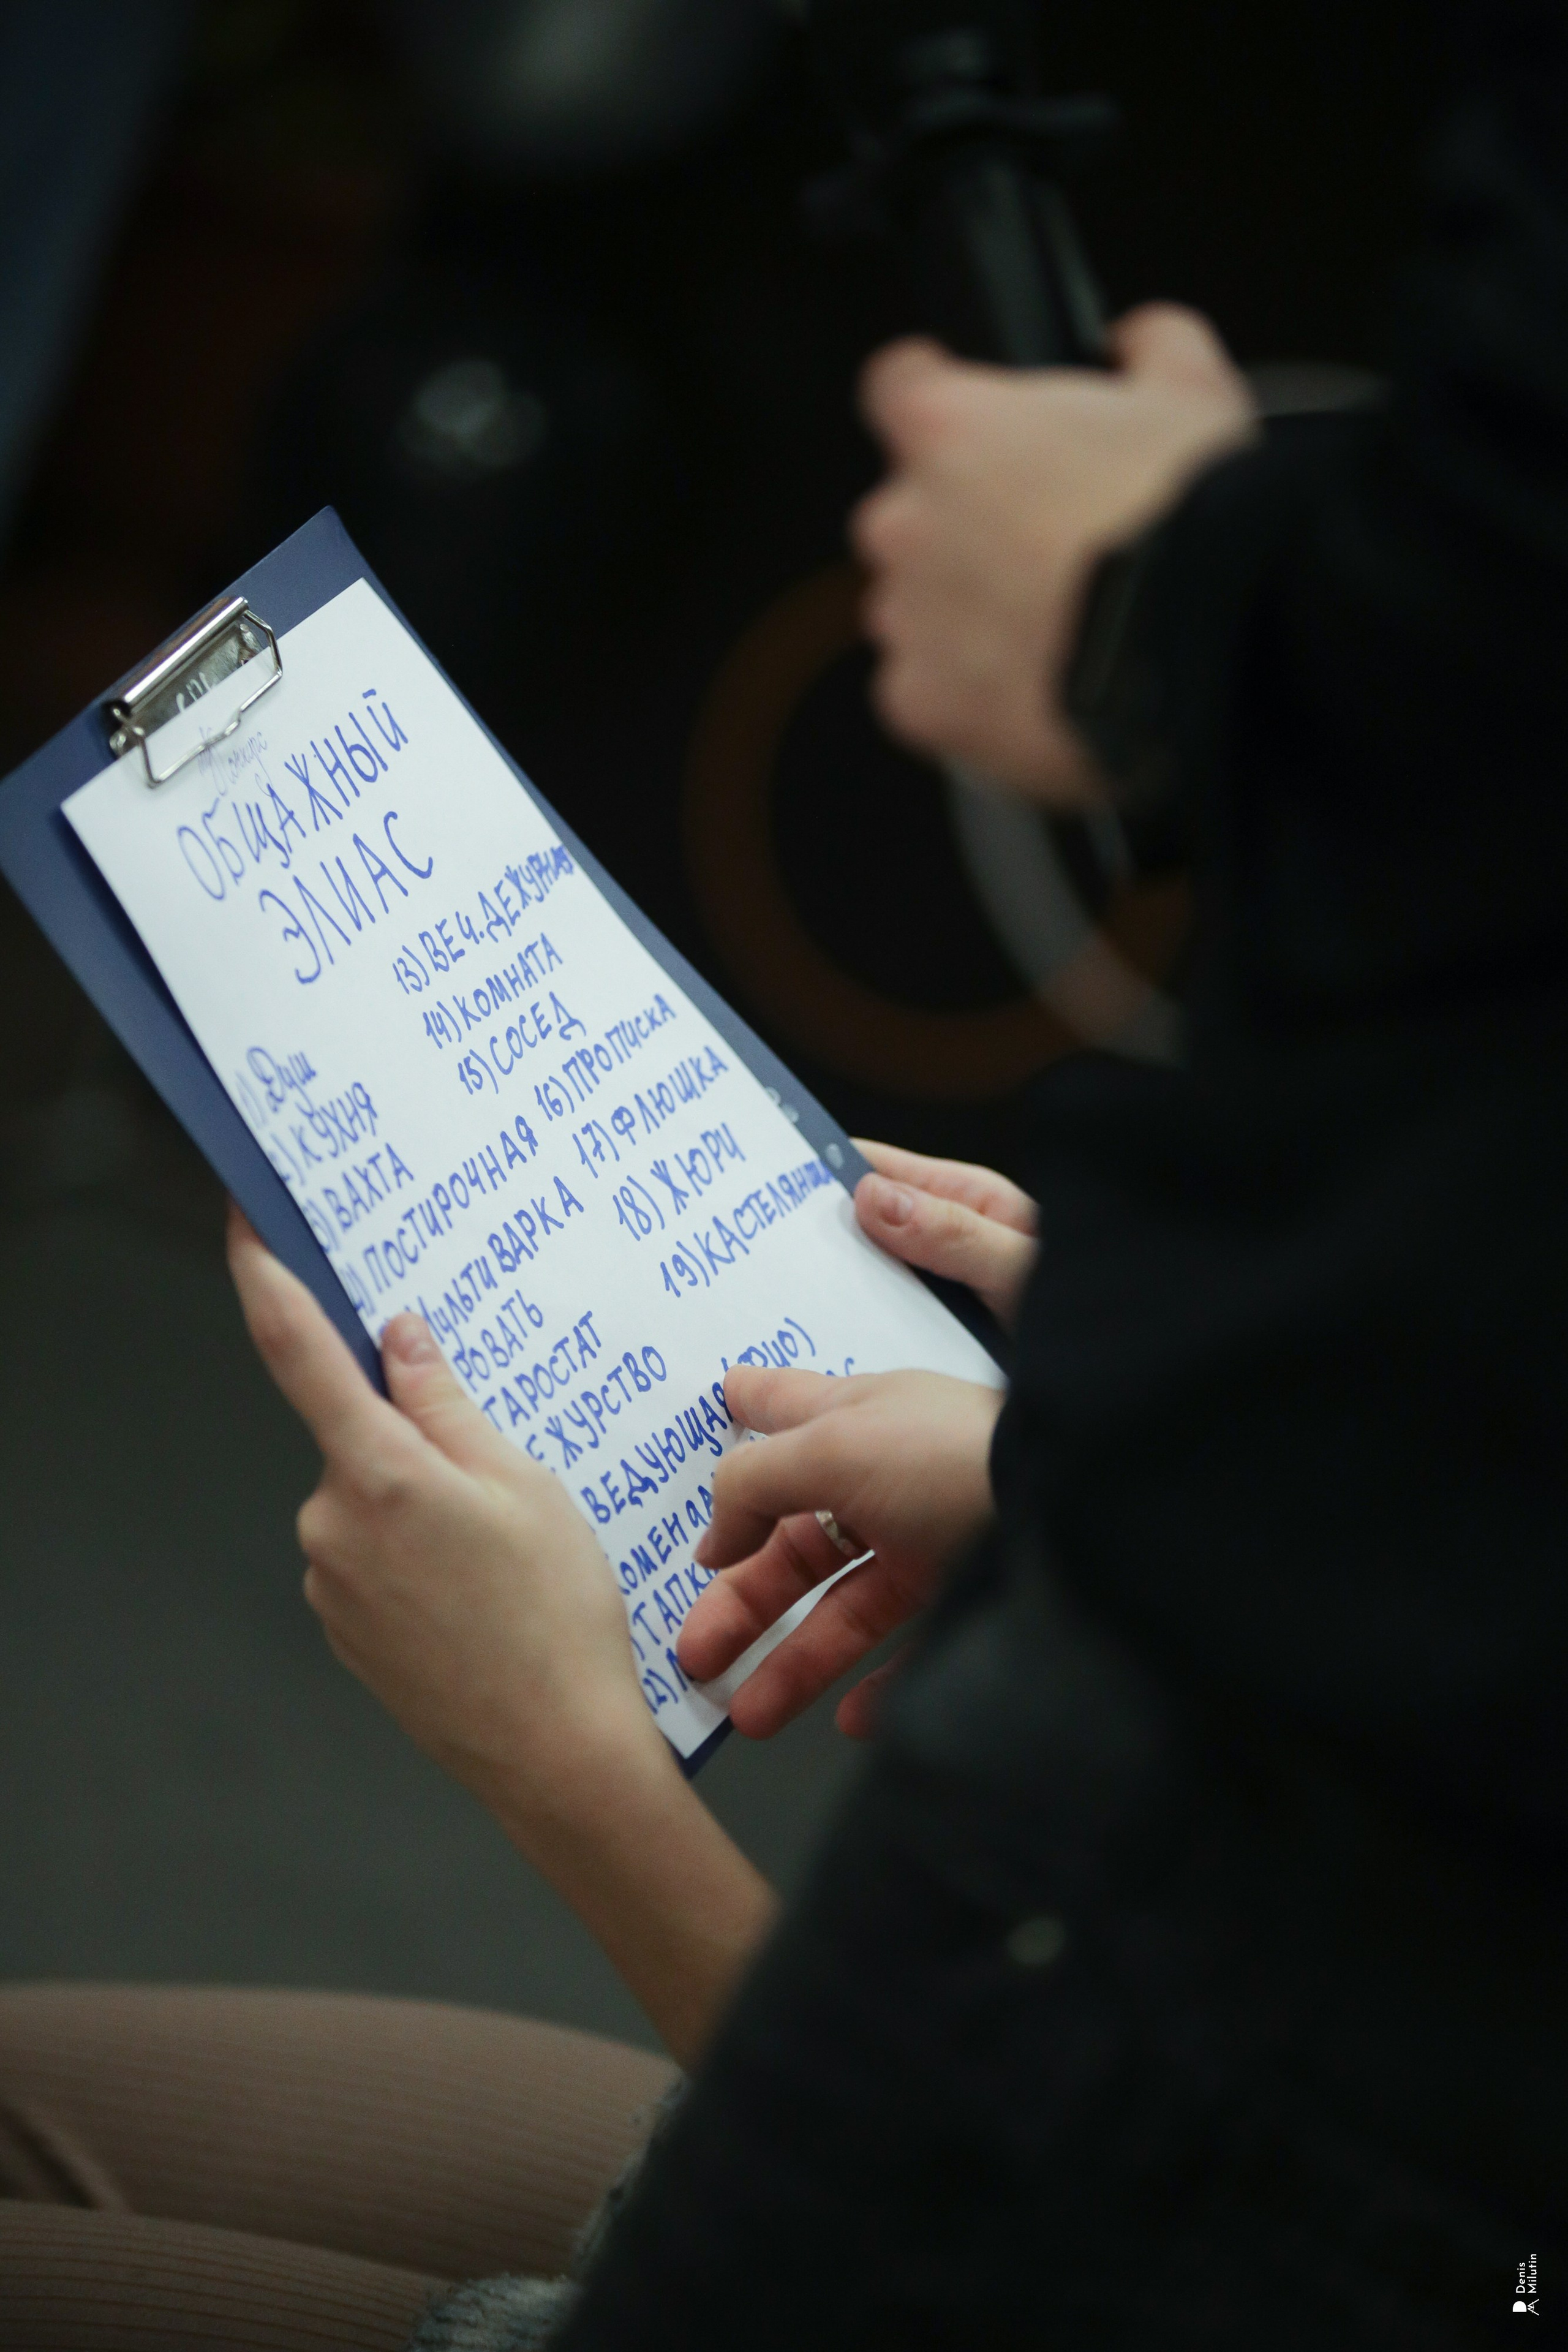 ОБЩАЖНЫЙ
ЭЛИАС
1) Душ
2) КУХНЯ
3) ВАХТА
4) ПОСТИРОЧНАЯ
МУЛЬТИВАРКА
РОВАТЬ
ТАРОСТАТ
ЕЖУРСТВО
ВЕДУЮЩАЯ
КОМЕН
ТАПК
12)
13) ВЕЧ. ДЕЖУРНАЯ
14) КОМНАТА
15) СОСЕД
16) ПРОПИСКА
17) ФЛЮШКА
18) ЖЮРИ
19) КАСТЕЛЯНША
Denis
Milutin